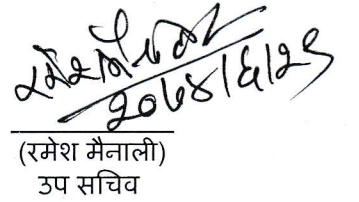 २०७४/६/२९
(रमेश मैनाली)
उप सचिव